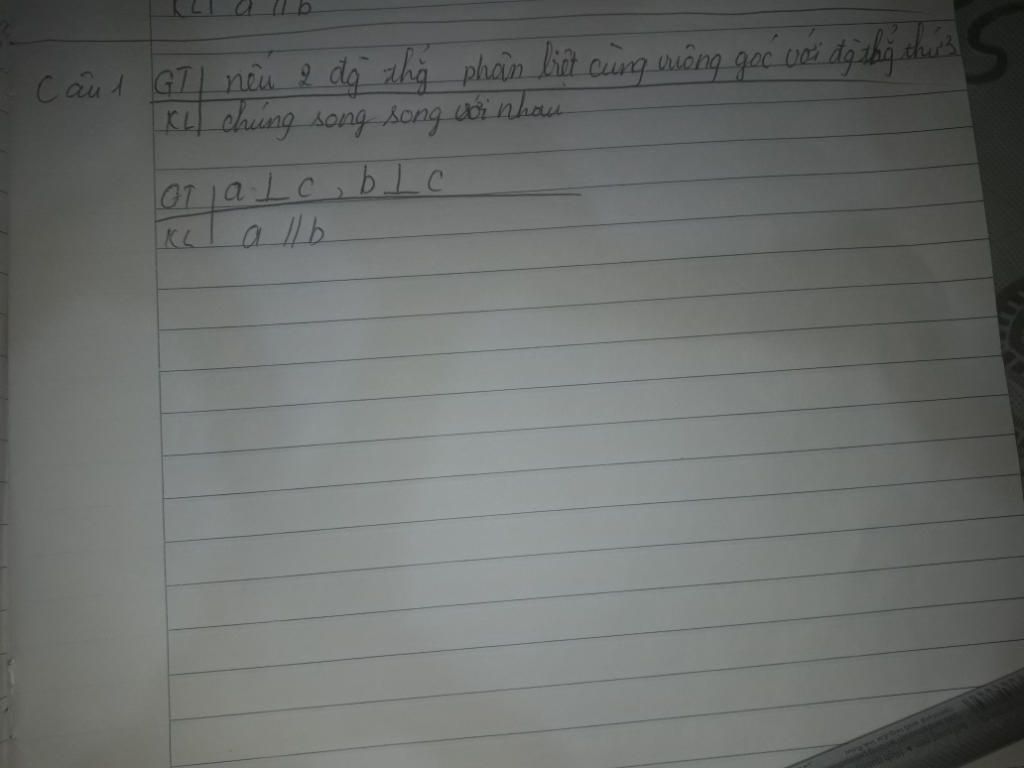 KL a // b
Câu 1 GT nếu 2 đg thg phân biệt cùng vuông góc với đg thg thứ 3
KL chúng song song với nhau
GT a ⊥ c, b ⊥ c
KL a // b